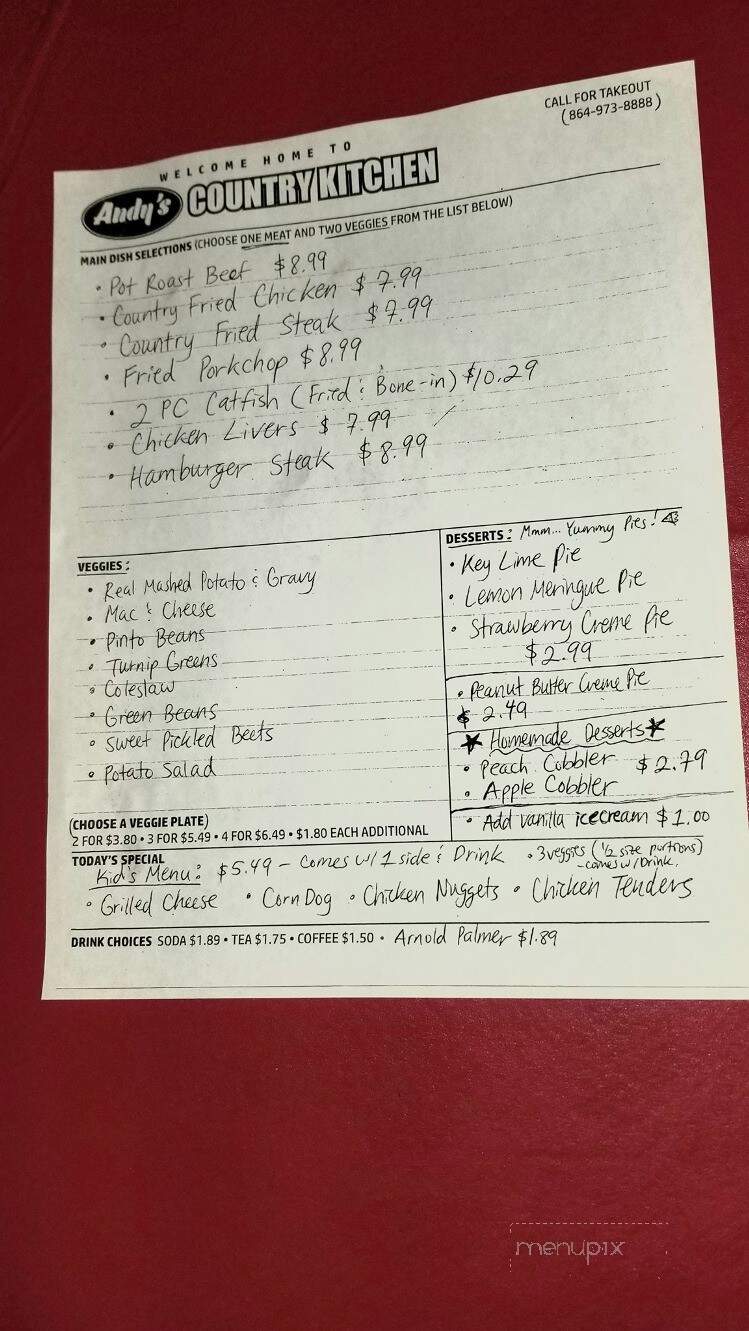 CALL FOR TAKEOUT
(864-973-8888)
WELCOME HOME TO
Andy's COUNTRY KITCHEN
MAIN DISH SELECTIONS (CHOOSE ONE MEAT AND TWO VEGGIES FROM THE LIST BELOW)
• Pot Roast Beef $8.99
• Country Fried Chicken $7.99
• Country Fried Steak $7.99
• Fried Porkchop $8.99
• 2 PC Catfish (Fried & Bone-in) $10.29
• Chicken Livers $7.99
• Hamburger Steak $8.99
VEGGIES:
• Real Mashed Potato & Gravy
• Mac & Cheese
• Pinto Beans
• Turnip Greens
• Coleslaw
• Green Beans
• Sweet Pickled Beets
• Potato Salad
(CHOOSE A VEGGIE PLATE)
2 FOR $3.80 • 3 FOR $5.49 • 4 FOR $6.49 • $1.80 EACH ADDITIONAL
DESSERTS: Mmm... Yummy Pies!
• Key Lime Pie
• Lemon Meringue Pie
• Strawberry Creme Pie
$2.99
• Peanut Butter Creme Pie
$2.49
★ Homemade Desserts ★
• Peach Cobbler $2.79
• Apple Cobbler
• Add vanilla icecream $1.00
TODAY'S SPECIAL
Kid's Menu: $5.49 - Comes w/ 1 side & Drink • 3 veggies (1/2 size portions)
- comes w/ Drink.
• Grilled Cheese • Corn Dog • Chicken Nuggets • Chicken Tenders
DRINK CHOICES SODA $1.89 • TEA $1.75 • COFFEE $1.50 • Arnold Palmer $1.89
menupix